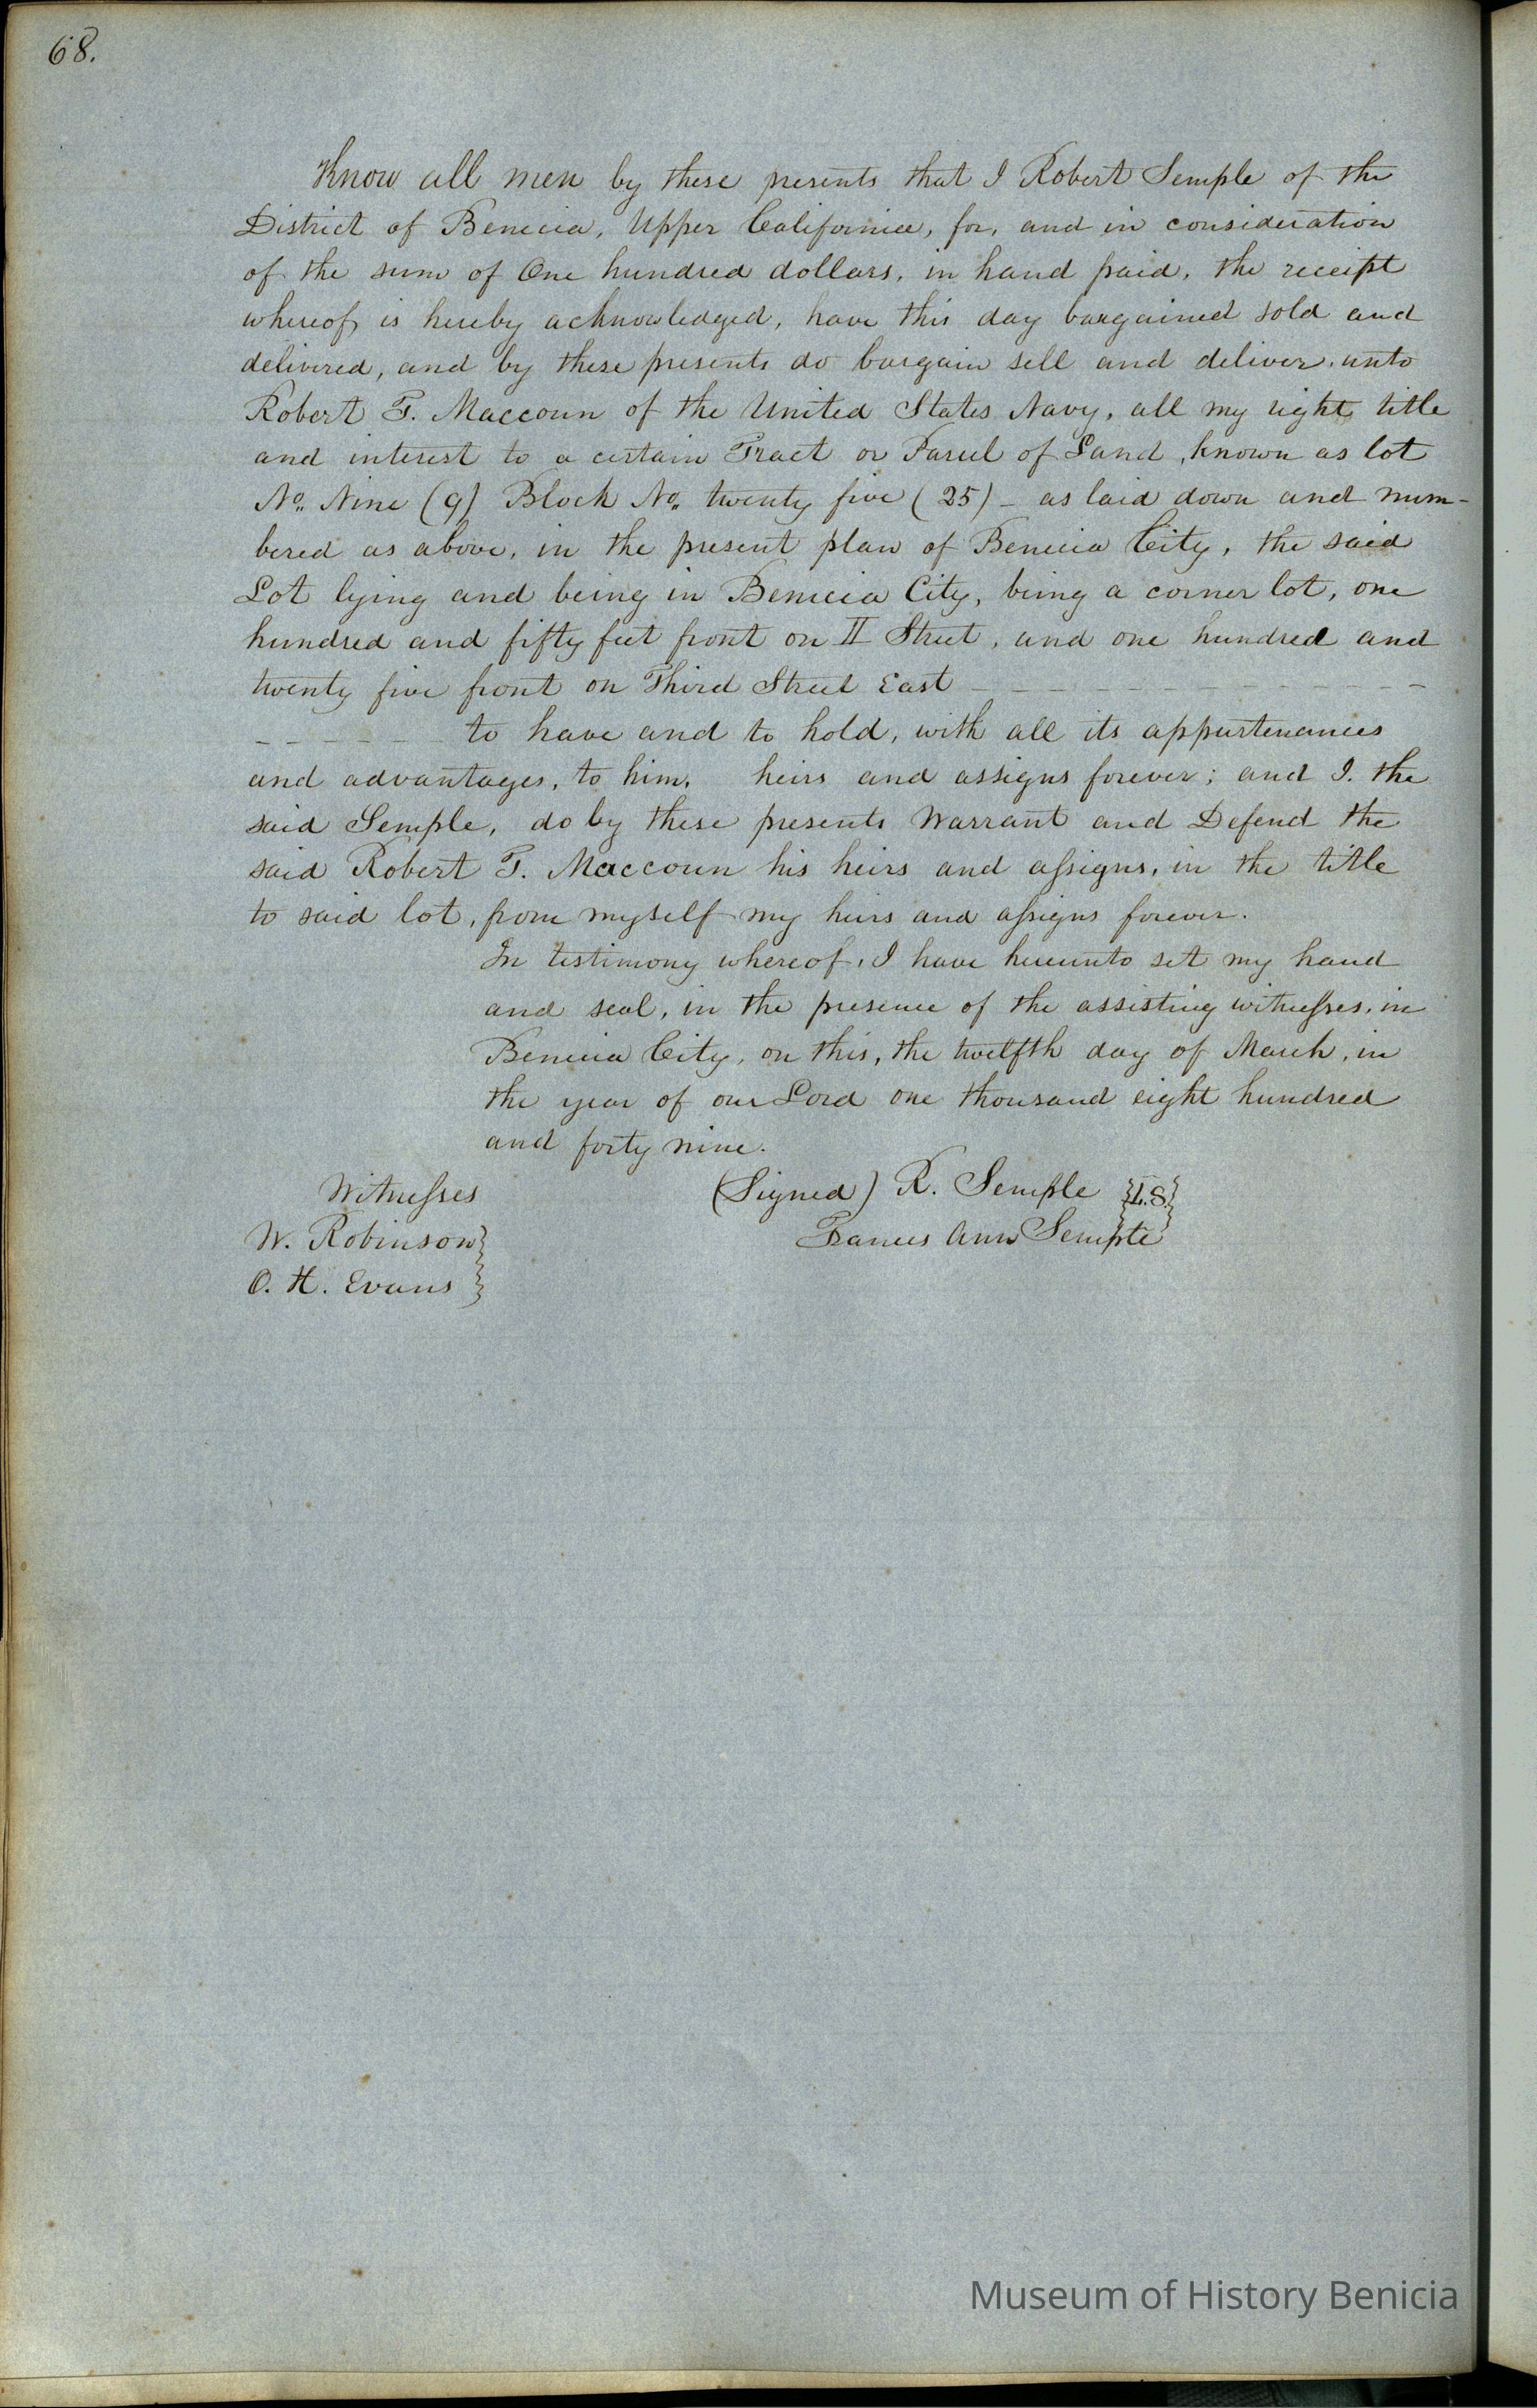 68.
Know all men by these presents that I Robert Semple of the
District of Benicia, Upper California, for, and in consideration
of the sum of One hundred dollars, in hand paid, the receipt
whereof, is hereby acknowledged, have this day bargained sold and
delivered, and by these presents do bargain sell and deliver, unto
Robert T. Maccoun of the United States Navy, all my right, title
and interest to a certain Tract or Parcel of Land, known as lot
No. Nine (9) Block No. twenty five (25) - as laid down and num-
bered as above, in the present plan of Benicia City, the said
Lot lying and being in Benicia City, being a corner lot, one
hundred and fifty feet front on II Street, and one hundred and
twenty five front on Third Street East - - - - - - - - - - - -
- - - - - - to have and to hold, with all its appurtenances
and advantages, to him, heirs and assigns forever; and I. the
said Semple, do by these presents Warrant and Defend the
said Robert T. Maccoun his heirs and assigns, in the title
to said lot, from myself my heirs and assigns forever.
In testimony whereof, I have hereunto set my hand
and seal, in the presence of the assisting witnesses, in
Benicia City, on this, the twelfth day of March, in
the year of our Lord one thousand eight hundred
and forty nine.
Witnesses (Signed) R. Semple {L.S.}
W. Robinson} Frances Ann Semple
O. H. Evans }
Museum of History Benicia